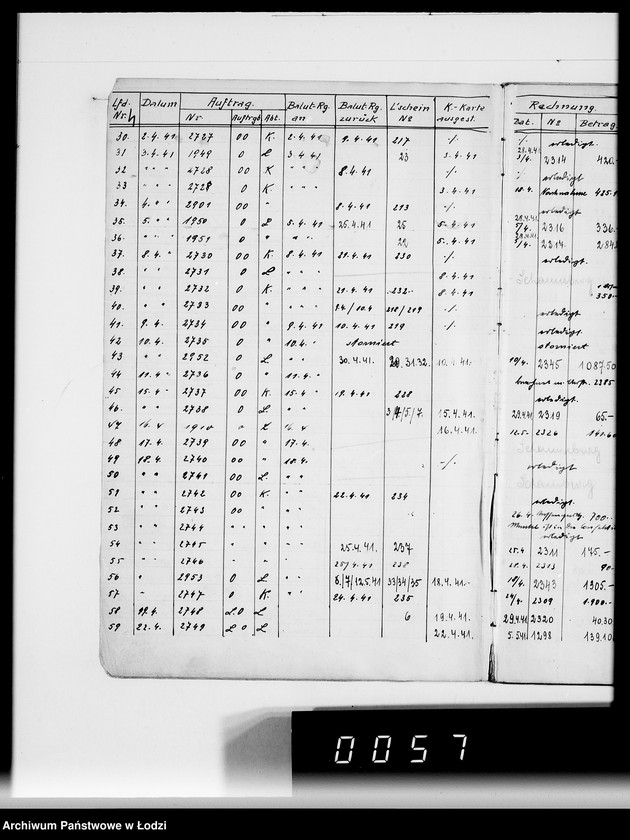 Lfd. Datum Auftrag. Balut-Rg. Balut-Rg. L'schein K.-Karte Rechnung.
Nr. Nr. Auftrgb. Abt. an zurück № ausgest. Dat. № Betrag
30. 2.4.41 2727 00 K. 2.4.41 9.4.41 217 -/- -/- erledigt.
31 3.4.41 1949 0 L 3.4.41 23 3.4.41 2314 420.-
32 " " " 2728 00 K " " " 8.4.41 -/- erledigt
33 " " " 2729 0 K " " " 3.4.41 18.4. Nachnahme 425.-
34. 4. " " 2901 00 " 8.4.41 213 -/- erledigt
35. 5. " " 1950 0 L 5.4.41 25.4.41 25 5.4.41 5/4. 2316 336.-
36. " " " 1951 0 " " " " 5.4.41 2317
37. 8.4. " 2730 00 K. 8.4.41 21.4.41 230 -/- erledigt.
38. " " 2731 0 L " " " 8.4.41
39. " " 2732 0 K. " " " 21.4.41 232 8.4.41
40. " " 2733 00 " " " 24./10.4 218/219 -/- 350.-
erledigt
41. 9.4. 2734 00 " 9.4.41 10.4.41 219 -/- erledigt.
42 10.4. 2735 0 " 10.4. storniert storniert
43 " " 2952 0 L " " 30.4.41. 29.31.32. 10.4.41. 10/4. 2345 1087.50
44 11.4. " 2736 0 " 11.4. "
45 15.4. " 2737 00 K. 15.4 " 19.4.41 228 erledigt.
46. " " 2738 0 L " " 3/4/5/7. 15.4.41. 29.4.41 2319 65.-
47 16.4 0 L 16.4 16.4.41. 12.5. 2326
48 17.4. 2739 00 " 17.4.
49 18.4. 2740 00 " 18.4. -/- erledigt
50 " " 2741 00 L. " "
51 " " 2742 00 K. " " 22.4.41 234 erledigt.
52 " " 2743 00 " " " 26.4. 700.-
53 " " 2744 " " " "
erledigt
54 " " 2745 " " " " 25.4.41. 237 25.4 2311 145.-
55 " " 2746 " " " " 25/4.41 238 2313 90.-
56 " 2953 0 L " " 6./7/12.5.41 33/34/35 18.4.41. 19/4. 2343 1305.-
57 " 2747 0 K. " " 24.4.41 235 24/4. 2309 1.900.-
58 19.4. 2748 L.0 L 6 19.4.41. 29.4.41 2320 40.30
59 22.4. 2749 L 0 L 22.4.41. 5.5.41 1298 139.10
0057
Archiwum Państwowe w Łodzi